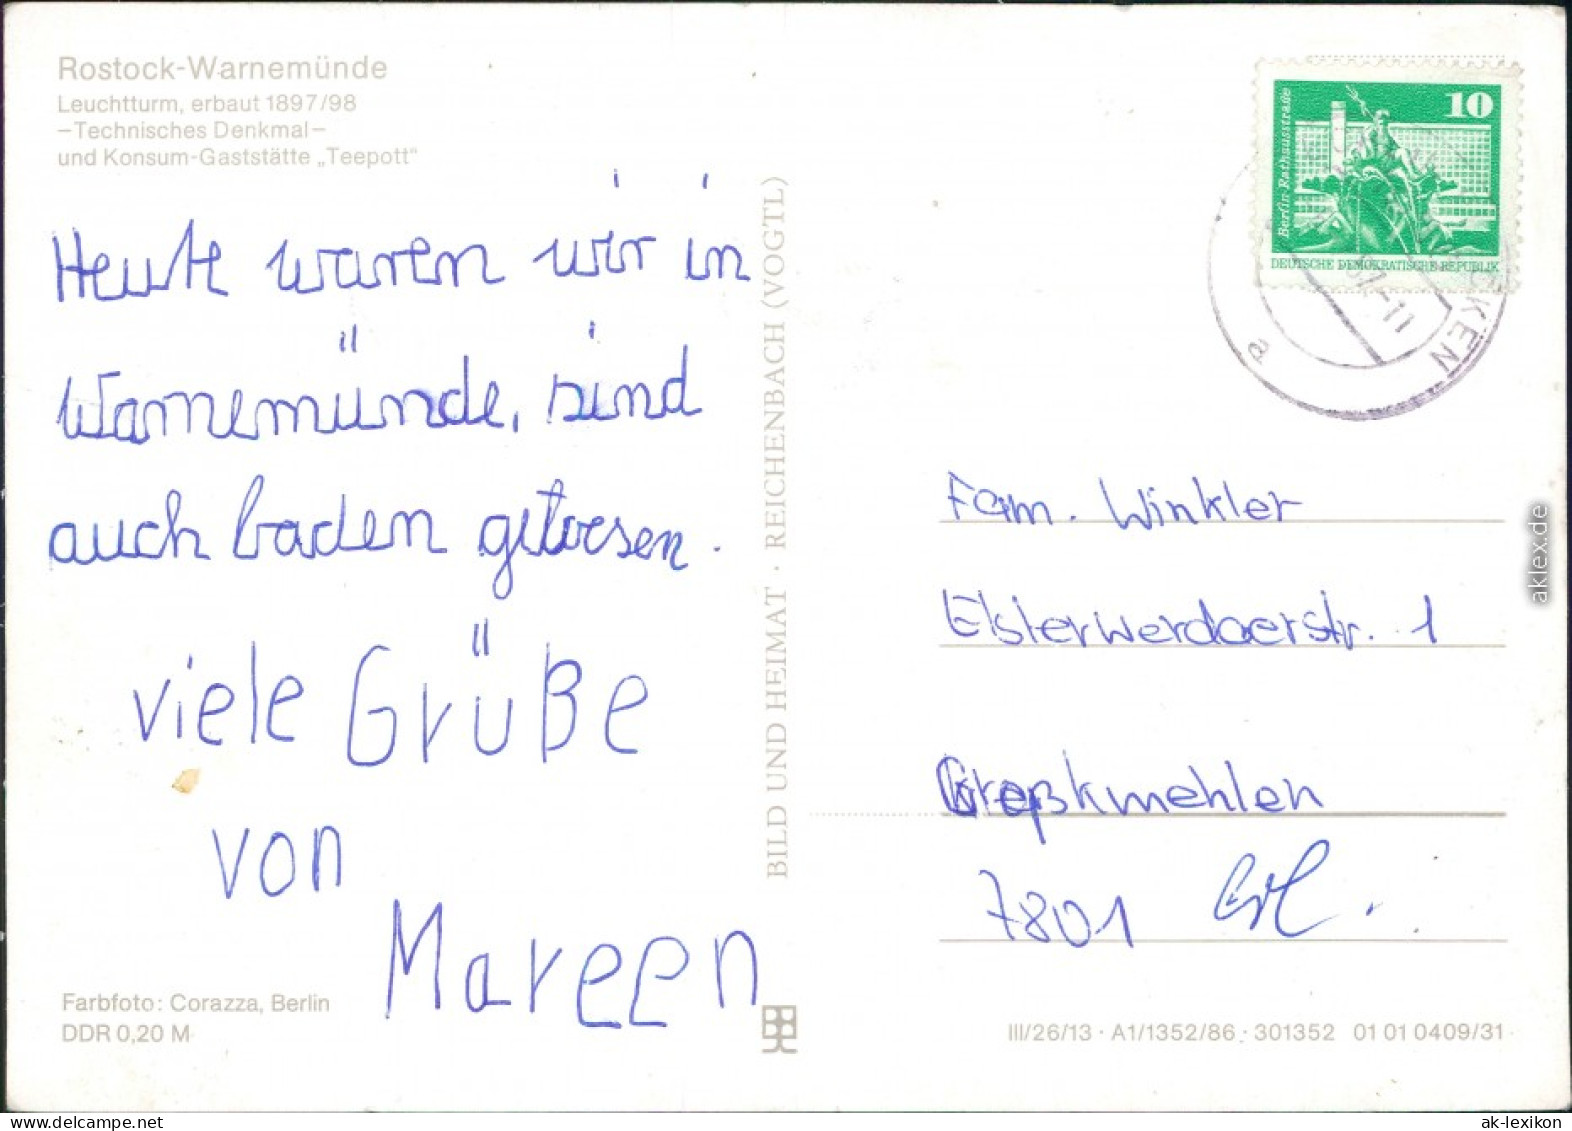 Rostock-Warnemünde
Leuchtturm, erbaut 1897/98
–Technisches Denkmal–
und Konsum-Gaststätte „Teepott"
Heute waren wir in
Warnemünde, sind
auch baden gewesen.
viele Grüße
von
Mareen
Farbfoto: Corazza, Berlin
DDR 0,20 M
BILD UND HEIMAT · REICHENBACH (VOGTL)
10
Berlin-Rathausstraße
DEUTSCHE DEMOKRATISCHE REPUBLIK
a
Fam. Winkler
Elsterwerdaerstr. 1
7801
III/26/13 · A1/1352/86 · 301352 01 01 0409/31
aklex.de
ak-lexikon